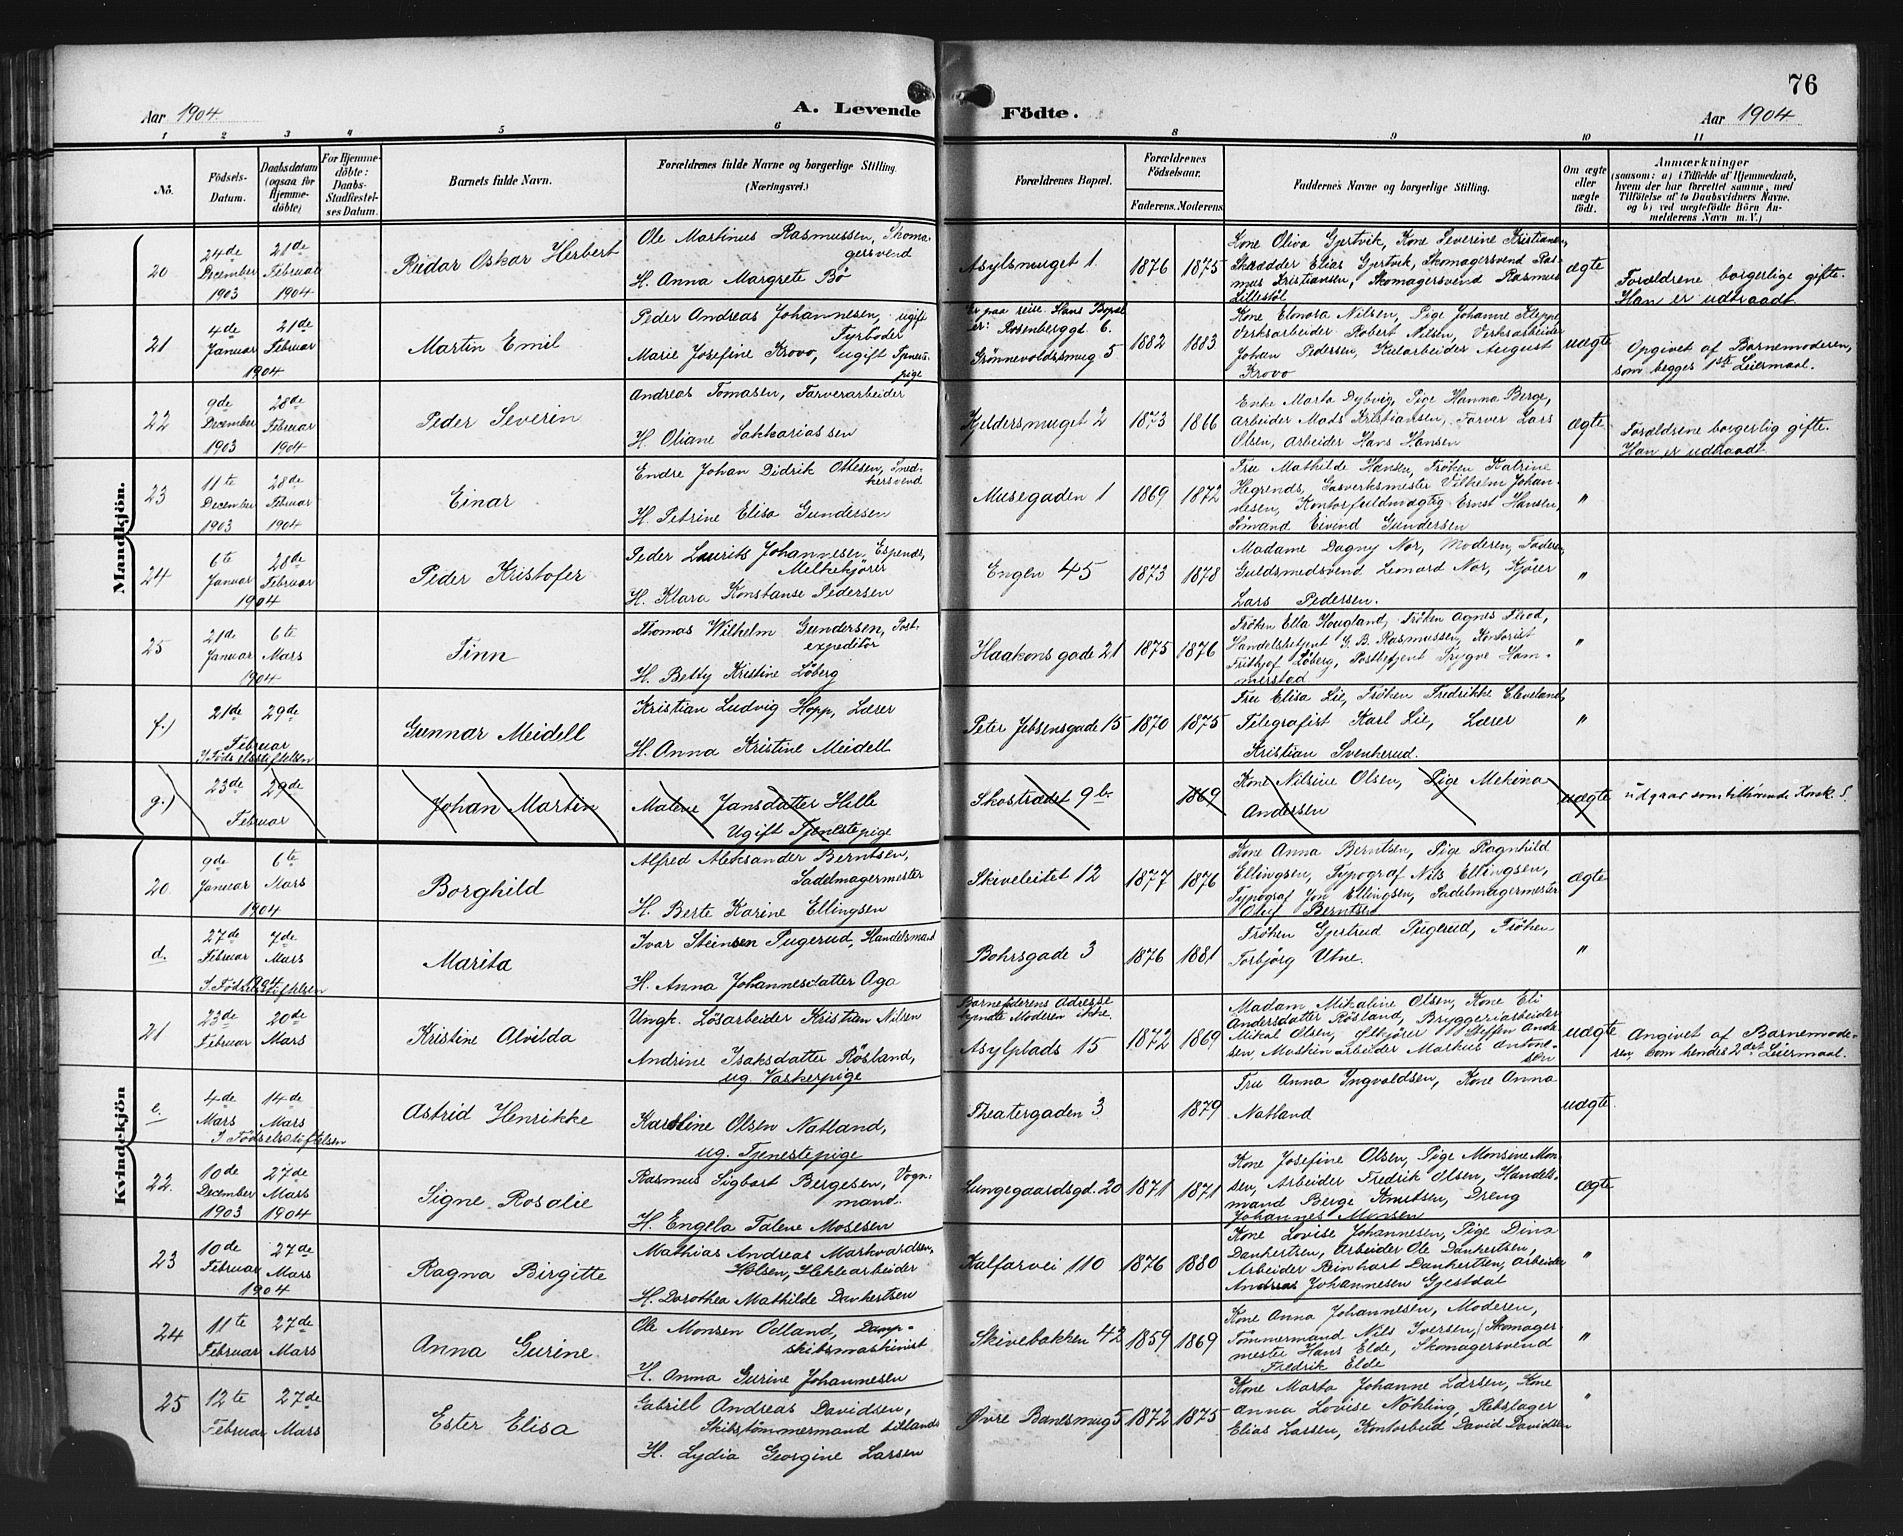 76
Aar 1904
A. Levende
Födte.
Aar 1904
1 2 3 4 5 6 8 9 10 11
No.
Födsels-Datum.
Daabsdatum (ogsaa for Hjemme-döbte)
For Hjemme-döbte: Daabs-Stadfæstel-ses Datum.
Barnets fulde Navn.
Forældrenes fulde Navne og borgerlige Stilling. (Næringsvei.)
Forældrenes Bopæl.
Forældrenes Födselsaar.
Faderens. Moderens.
Faddernes Navne og borgerlige Stilling.
Om ægte eller uægte födt.
Anmærkninger
(saasom: a) i Tilfælde af Hjemmedaab,
hvem der har forrettet samme, med
Tilföielse af to Daabsvidners Navne,
og b) ved uægtefödte Börn An-
melderens Navn m. V.)
Mandkjön.
20
24de December 1903
21de Februar 1904
Reidar Oskar Herbert
Ole Martinus Rasmussen, Skoma-
gersvend
H. Anna Margrete Bö
Asylsmuget 1
1876 1875
Kone Oliva Gjertvik, Kone Severine Kristiansen,
Skrædder Elias Gjertvik, Skomagersvend Ras-
mus Kristiansen, Skomagersvend Rasmus
Lillestöl
ægte
Forældrene borgerlige gifte.
Han er udtraadt
21
4de Januar
21de Februar
1904
Martin Emil
Peder Andreas Johannesen, ugift
Fyrböder
Marie Josefine Krovo, ugift
pige
Er paa reise. Hans Bopæl
er: Rosenberggd. 6.
Grönnevoldsmug 5
1882 1883
Kone Elonora Nilsen, Pige Johanne Kleppe
Verksarbeider Robert Nilsen, Verksarbeider
Johan Pedersen, Kularbeider August
Krovo
uægte
Opgivet af Barnemoderen,
som begges 1ste Leiermaal.
22
9de December 1903
28de Februar 1904
Peder Severin
Andreas Tomasen, Farverarbeider
H. Oliane Sakkariassen
Kjeldersmuget 2
1873 1866
Enke Marta Dybvig, Pige Hanna Berge,
Arbeider Mads Kristiansen, Farver Lars
Olsen, Arbeider Hans Hansen
ægte
Forældrene borgerlig gifte.
Han er udtraadt
23
11te December 1903
28de Februar 1904
Einar
Endre Johan Didrik Ottesen, Sned-
kersvend
H. Petrine Elisa Gundersen
Musegaden 1
1869 1872
Fru Mathilde Hansen, Fröken Katrine
Hegrends, Gasverksmester Vilhelm Johan-
nesen, Kontorfuldmægtig Ernst Hansen,
Sömand Eivind Gundersen
"
24
6te Januar
28de Februar
1904
Peder Kristofer
Peder Laurits Johannesen Espenes,
Melkekjörer
H. Klara Konstanse Pedersen
Engen 45
1873 1878
Madame Dagny Nor, Moderen, Faderen,
Guldsmedsvend Leonard Nor, Kjörer
Lars Pedersen.
"
25
21de Januar
6te Mars
1904
Finn
Thomas Wilhelm Gundersen, Post-
expeditör
H. Betty Kristine Löberg
Haakons gade 21
1875 1876
Fröken Ella Hougland, Fröken Agnes Flod,
Handelsbetjent G. B. Rasmussen, Kontorist
Fridtjof Löberg, Postbetjent Trygve Ham-
merstad
"
f.)
21de 29de
Februar
I Födselsstiftelsen
Gunnar Meidell
Kristian Ludvig Hopp, Lærer
H. Anna Kristine Meidell
Peter Jebsensgade 15
1870 1875
Fru Elisa Lie, Fröken Fredrikke Cleveland,
Telegrafist Karl Lie, Lærer
Kristian Svenkerud.
"
g.)
23de 29de
Februar
Johan Martin
Malene Jansdatter Hille
Ugift Tjenestepige
Skostrædet 9 b.
1869
Kone Nilsine Olsen, Pige Mekina
Andersen
uægte
udgaar som tilhörende Korsk. S.
Kvindekjön
20
9de Januar
6te Mars
1904
Borghild
Alfred Aleksander Berntsen,
Sadelmagermester
H. Berte Karine Ellingsen
Skiveleitet 12
1877 1876
Kone Anna Berntsen, Pige Ragnhild
Ellingsen, Typograf Nils Ellingsen,
Typograf Jon Ellingsen, Sadelmagermester
Oluf Berntsen
ægte
d.
27de Februar
7de Mars
1904
I Födselsstiftelsen
Marita
Ivar Steinsen Pugerud, Handelsmand
H. Anna Johannesdatter Aga
Bohrsgade 3
1876 1881
Fröken Gjertrud Pugerud, Fröken
Torbjörg Utne.
"
21
23de Februar
20de Mars
Kristine Alvilda
Ungk. Lösarbeider Kristian Nilsen
Andrine Isaksdatter Rösland,
ug. Vaskerpige
Barnefaderens Adresse
kjendte Moderen ikke.
Asylplads 15
1872 1869
Madam Mikaline Olsen, Kone Eli
Andersdatter Rösland, Bryggeriarbeider
Mikal Olsen, Ölkjörer Steffen Ande-
sen, Maskinarbeider Markus Antone-
sen
uægte
Angivet af Barnemode-
ren som hendes 2det Leiermaal.
e.
4de Mars
14de Mars
I Födselsstiftelsen
Astrid Henrikke
Karoline Olsen Natland,
ug. Tjenestepige
Theatergaden 3
1879
Fru Anna Ingvaldsen, Kone Anna
Natland
uægte
22.
10de December 1903
27de Mars 1904
Signe Rosalie
Rasmus Sigbart Bergesen, Vogn-
mand.
H. Engela Talene Mosesen
Lungegaardsgd. 20
1871 1871
Kone Josefine Olsen, Pige Monsine Mon-
sen, Arbeider Fredrik Olsen, Handels-
mand Berge Knutsen, Dreng
Johannes Monsen
ægte
23
10de Februar
27de Mars
1904
Ragna Birgitte
Mathias Andreas Markvardsen
Holsen, Heklearbeider
H. Dorothea Mathilde Dankertsen
Kalfarvei 110
1876 1880
Kone Lovise Johannesen, Pige Dina
Dankertsen, Arbeider Ole Dankertsen,
Arbeider Binhart Dankertsen, Arbeider
Andreas Johannesen Gjestdal
"
24
11te Februar
27de Mars
Anna Gurine
Ole Monsen Odland, Damp-
skibsmaskinist
H. Anna Gurine Johannesen
Skivebakken 42
1859 1869
Kone Anna Johannesen, Moderen,
Tömmermand Nils Iversen, Skomager
mester Hans Elde, Skomagersvend
Fredrik Elde
"
25
12te Februar
27de Mars
Ester Elisa
Gabriell Andreas Davidsen,
Skibstömmermand
H. Lydia Georgine Larsen
Övre Banesmug 5
1872 1875
Kone Marta Johanne Larsen, Kone
Anna Lovise Nökling, Rebslager
Elias Larsen, Kontorbud David Davidsen
"